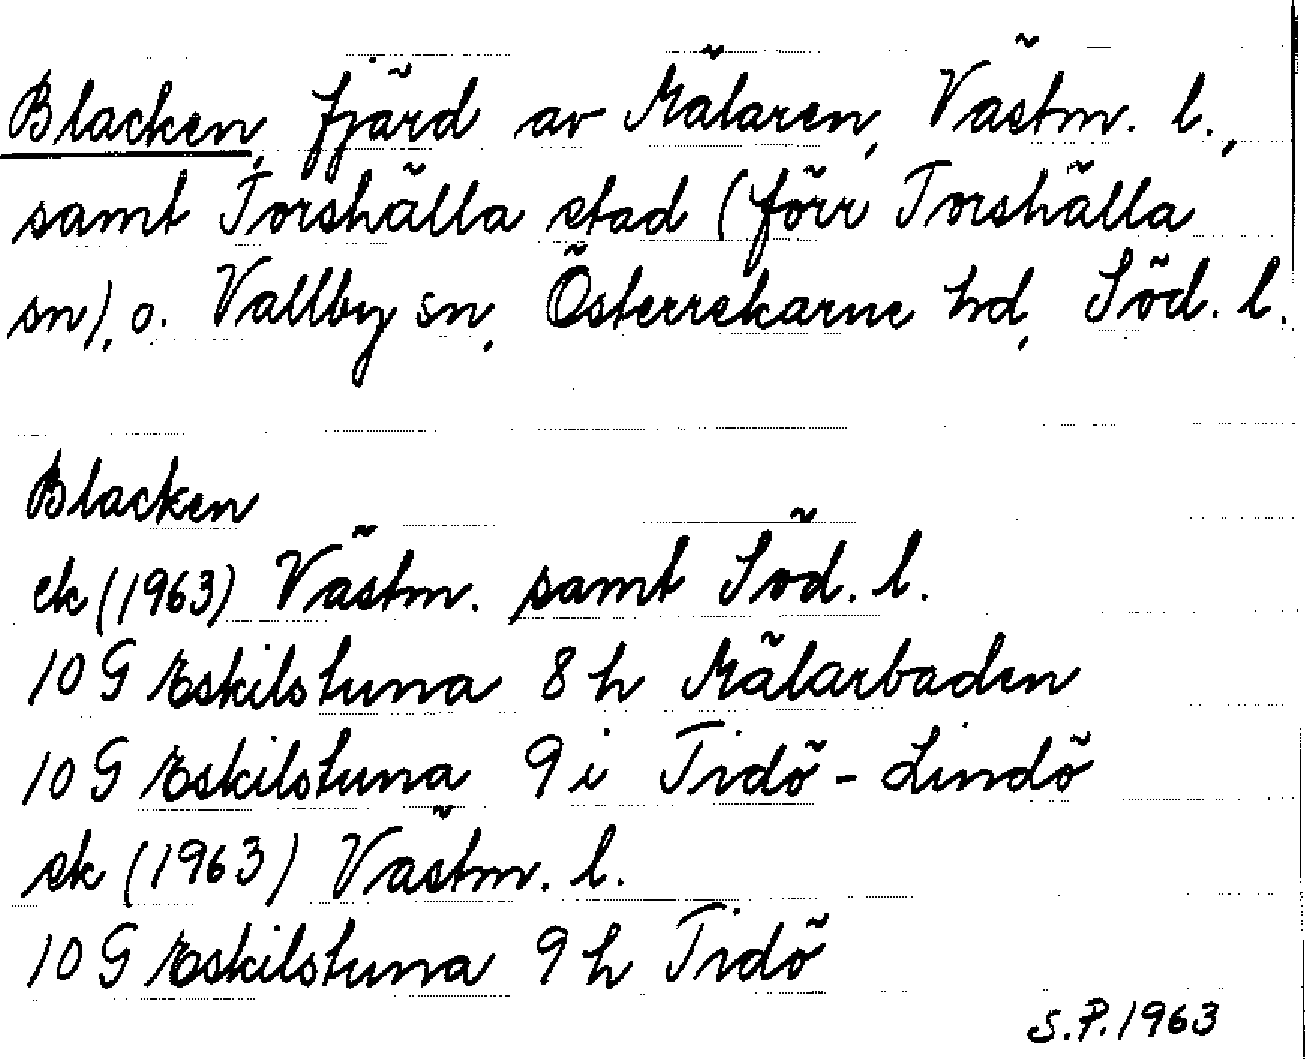 Blacken, fjärd av Mälaren, Västm. l.,
samt Torshälla stad (förr Torshälla
sn), o. Vallby sn, Österrekarne hd, Söd. l.
Blacken
ek (1963) Västm. samt Söd. l.
10 G Eskilstuna 8 h Mälarbaden
10 G Eskilstuna 9 i Tidö - Lindö
ek (1963) Västm. l.
10 G Eskilstuna 9 h Tidö
S.P. 1963